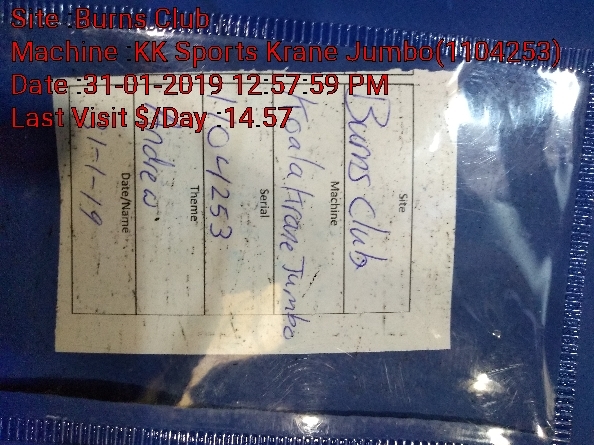 Site :Burns Club
Machine :KK Sports Krane Jumbo(1104253)
Date :31-01-2019 12:57:59 PM
Last Visit $/Day :14.57
Site
Burns Club
Machine
Koala Krane Jumbo
Serial
1104253
Theme
Andrew
Date/Name
1-1-19